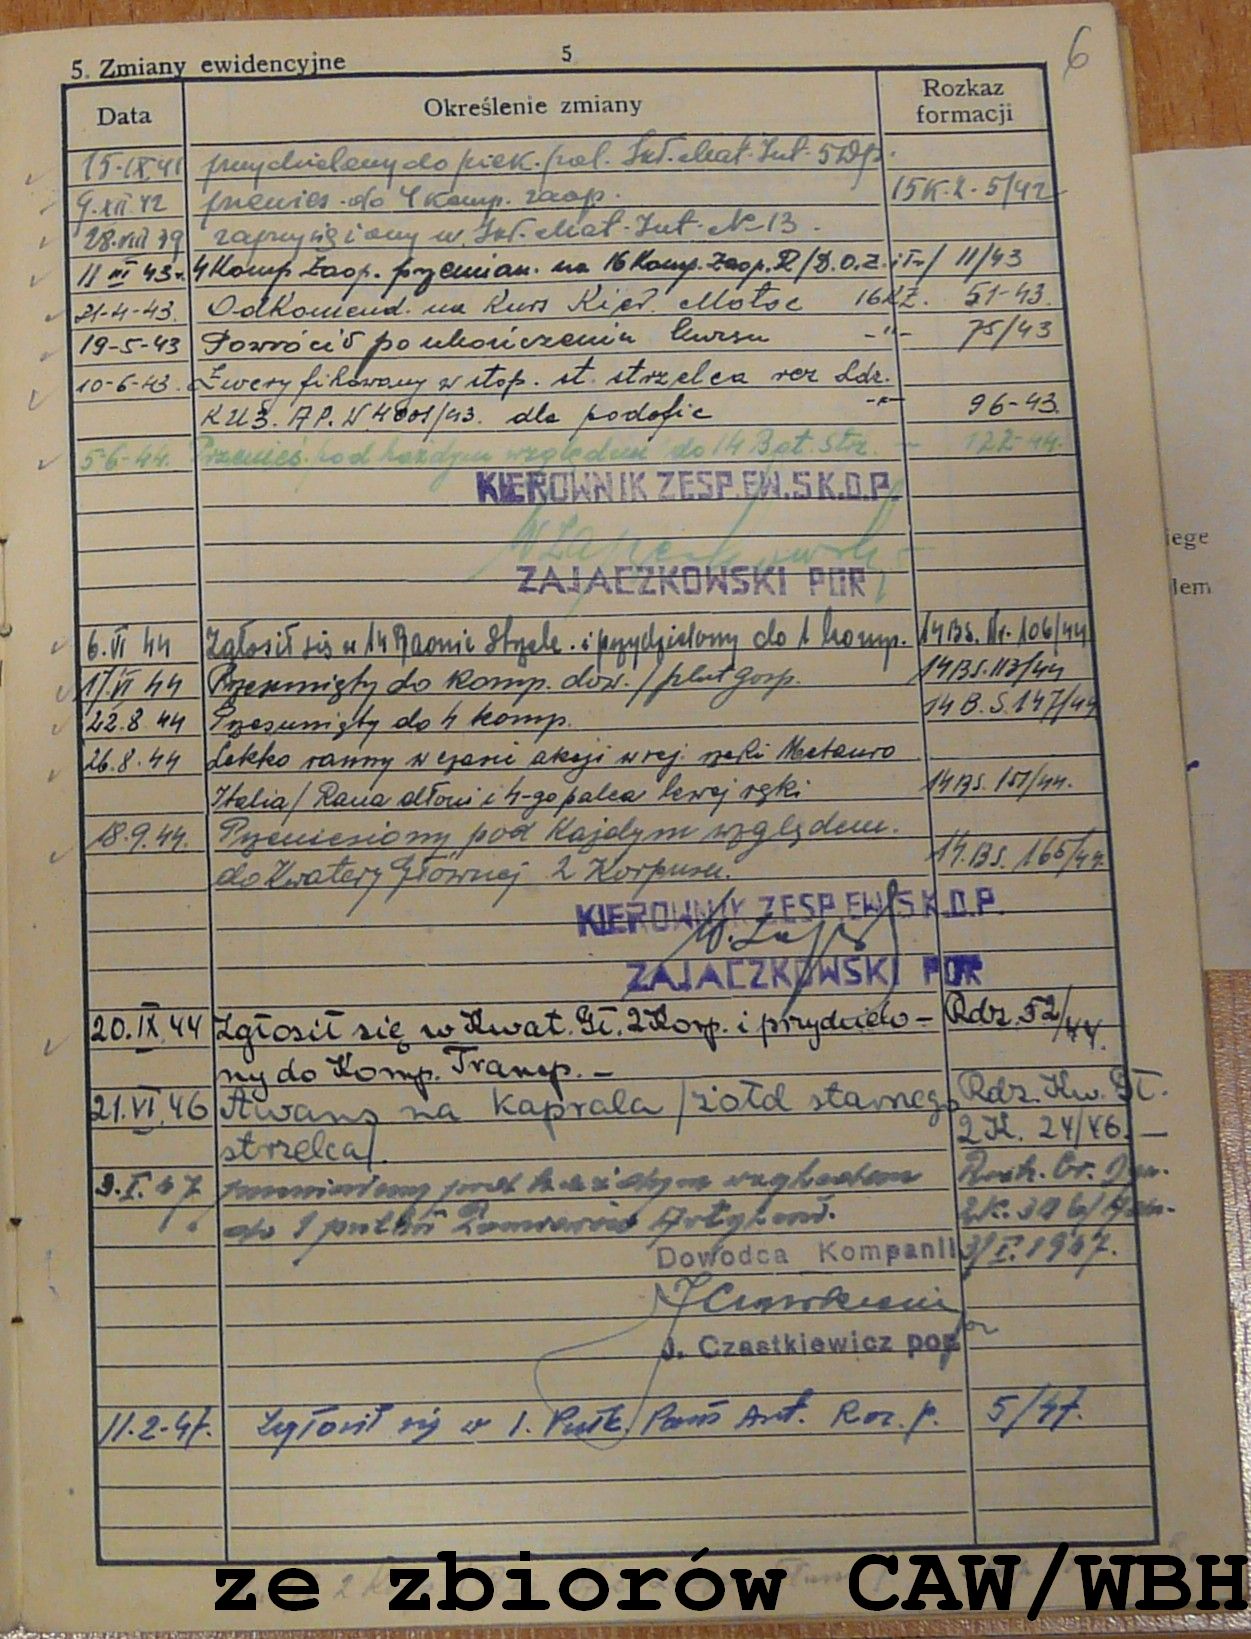 5. Zmiany ewidencyjne 5 6
Data Określenie zmiany Rozkaz formacji
15.IX.41 przydzielony do piek. pol. Skł. Mat. Int. 5 Dp.
9.XII.42 przenies. do 4 Komp. zaop. 15K.Z. 5/42
28.VIII 39 zaprzysiężony w Skł. Mat. Int. No 13.
11 III 43r. 4 Komp Zaop. przemian. na 16 Komp. Zaop. R/D.O.Z. i T-/ 11/43
21-4-43. Odkomend. na Kurs Kier. Motoc 16KZ. 51-43.
19-5-43 Powrócił po ukończeniu kursu -"- 75/43
10-6-43. Zweryfikowany w stop. st. strzelca rez Ldz.
KUZ. AP. W. 4001/43. dla podofic -"- 96-43.
5-6-44. Przenieś. pod każdym względem do 14 Bat. Strz. - 122-44.
KIEROWNIK ZESP.EW.S K.O.P.
ZAJACZKOWSKI POR
6.VI 44 Zgłosił się w 14 Baonie Strzele. i przydzielony do 1 komp. 14BS. Nr. 106/44
17.VI 44 Przesunięty do komp. dow. / plut gosp. 14BS.113/44
22.8.44 Przesunięty do 4 komp. 14 B.S.147/44
26.8.44 Lekko ranny w czasie akcji w rej. rzeki Metauro
Italia/ Rana dłoni i 4-go palca lewej ręki 14BS. 151/44.
18.9.44. Przeniesiony pod każdym względem.
do Kwatery Głównej 2 Korpusu. 14.BS. 165/44.
KIEROWNIK ZESP.EW.S K.O.P.
W. Zaj
ZAJACZKOWSKI POR
20.IX.44 Zgłosił się w Kwat. Gł. 2 Korp. i przydzielo- Rdz. 52/44.
ny do Komp. Transp. -
21.VI.46 Awans na kaprala /żołd starszego Rdz. Kw. Gł.
strzelca/. 2 K. 24/46. -
9.I.47 przeniesiony pod każdym względem
do 1 pułku Pomiarów Artylerii.
Dowodca Kompanii 3/I.1947.
J. Czastkiewicz por
11.2-47. Zgłosił się w 1. Pułk. Pom Art. Roz. p. 5/47.
iege
lem
ze zbiorów CAW/WBH